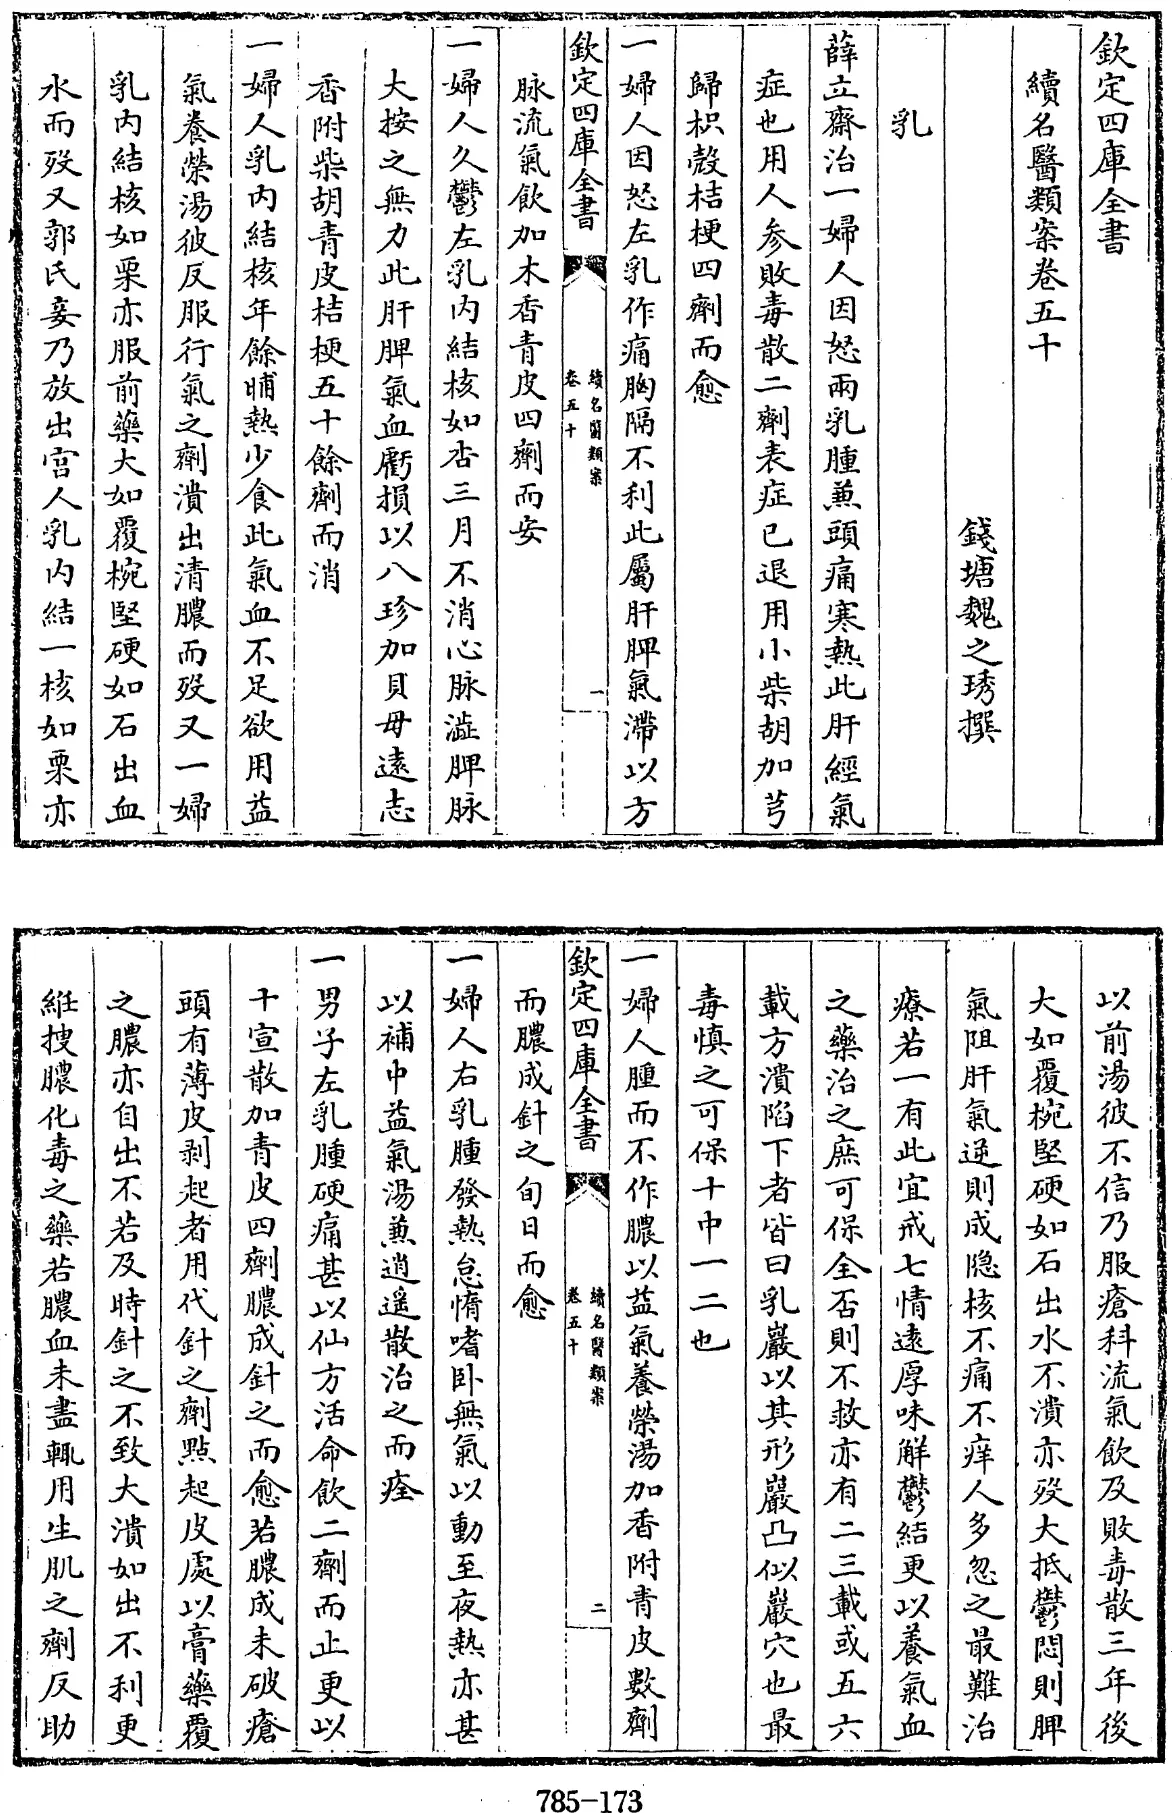 欽定四庫全書
續名醫類案卷五十
錢塘魏之琇撰
乳
薛立齋治一婦人因怒兩乳腫兼頭痛寒熱此肝經氣
症也用人參敗毒散二劑表症已退用小柴胡加芎
歸枳殼桔梗四劑而愈
一婦人因怒左乳作痛胸隔不利此屬肝脾氣滯以方
欽定四庫全書
續名醫類案
卷五十
一
脉流氣飲加木香青皮四劑而安
一婦人久鬱左乳内結核如杏三月不消心脉澁脾脉
大按之無力此肝脾氣血虧損以八珍加貝母遠志
香附柴胡青皮桔梗五十餘劑而消
一婦人乳内結核年餘晡熱少食此氣血不足欲用益
氣養榮湯彼反服行氣之劑潰出清膿而殁又一婦
乳内結核如栗亦服前藥大如覆椀堅硬如石出血
水而殁又郭氏妾乃放出宫人乳内結一核如栗亦
以前湯彼不信乃服瘡科流氣飲及敗毒散三年後
大如覆椀堅硬如石出水不潰亦殁大抵鬱悶則脾
氣阻肝氣逆則成隱核不痛不痒人多忽之最難治
療若一有此宜戒七情遠厚味解鬱結更以養氣血
之藥治之庶可保全否則不救亦有二三載或五六
載方潰陷下者皆曰乳巖以其形巖凸似巖穴也最
毒慎之可保十中一二也
一婦人腫而不作膿以益氣養榮湯加香附青皮數劑
欽定四庫全書
續名醫類案
卷五十
二
而膿成針之旬日而愈
一婦人右乳腫發熱怠惰嗜卧無氣以動至夜熱亦甚
以補中益氣湯兼逍遥散治之而痊
一男子左乳腫硬痛甚以仙方活命飲二劑而止更以
十宣散加青皮四劑膿成針之而愈若膿成未破瘡
頭有薄皮剥起者用代針之劑點起皮處以膏藥覆
之膿亦自出不若及時針之不致大潰如出不利更
紝搜膿化毒之藥若膿血未盡輒用生肌之劑反助
785-173